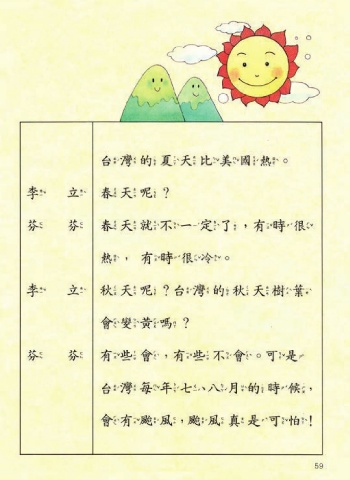 台灣的夏天比美國熱。
李 立 春天呢？
芬 芬 春天就不一定了，有時很
熱，有時很冷。
李 立 秋天呢？台灣的秋天樹葉
會變黃嗎？
芬 芬 有些會，有些不會。可是
台灣每年七、八月的時候，
會有颱風，颱風真是可怕！
59